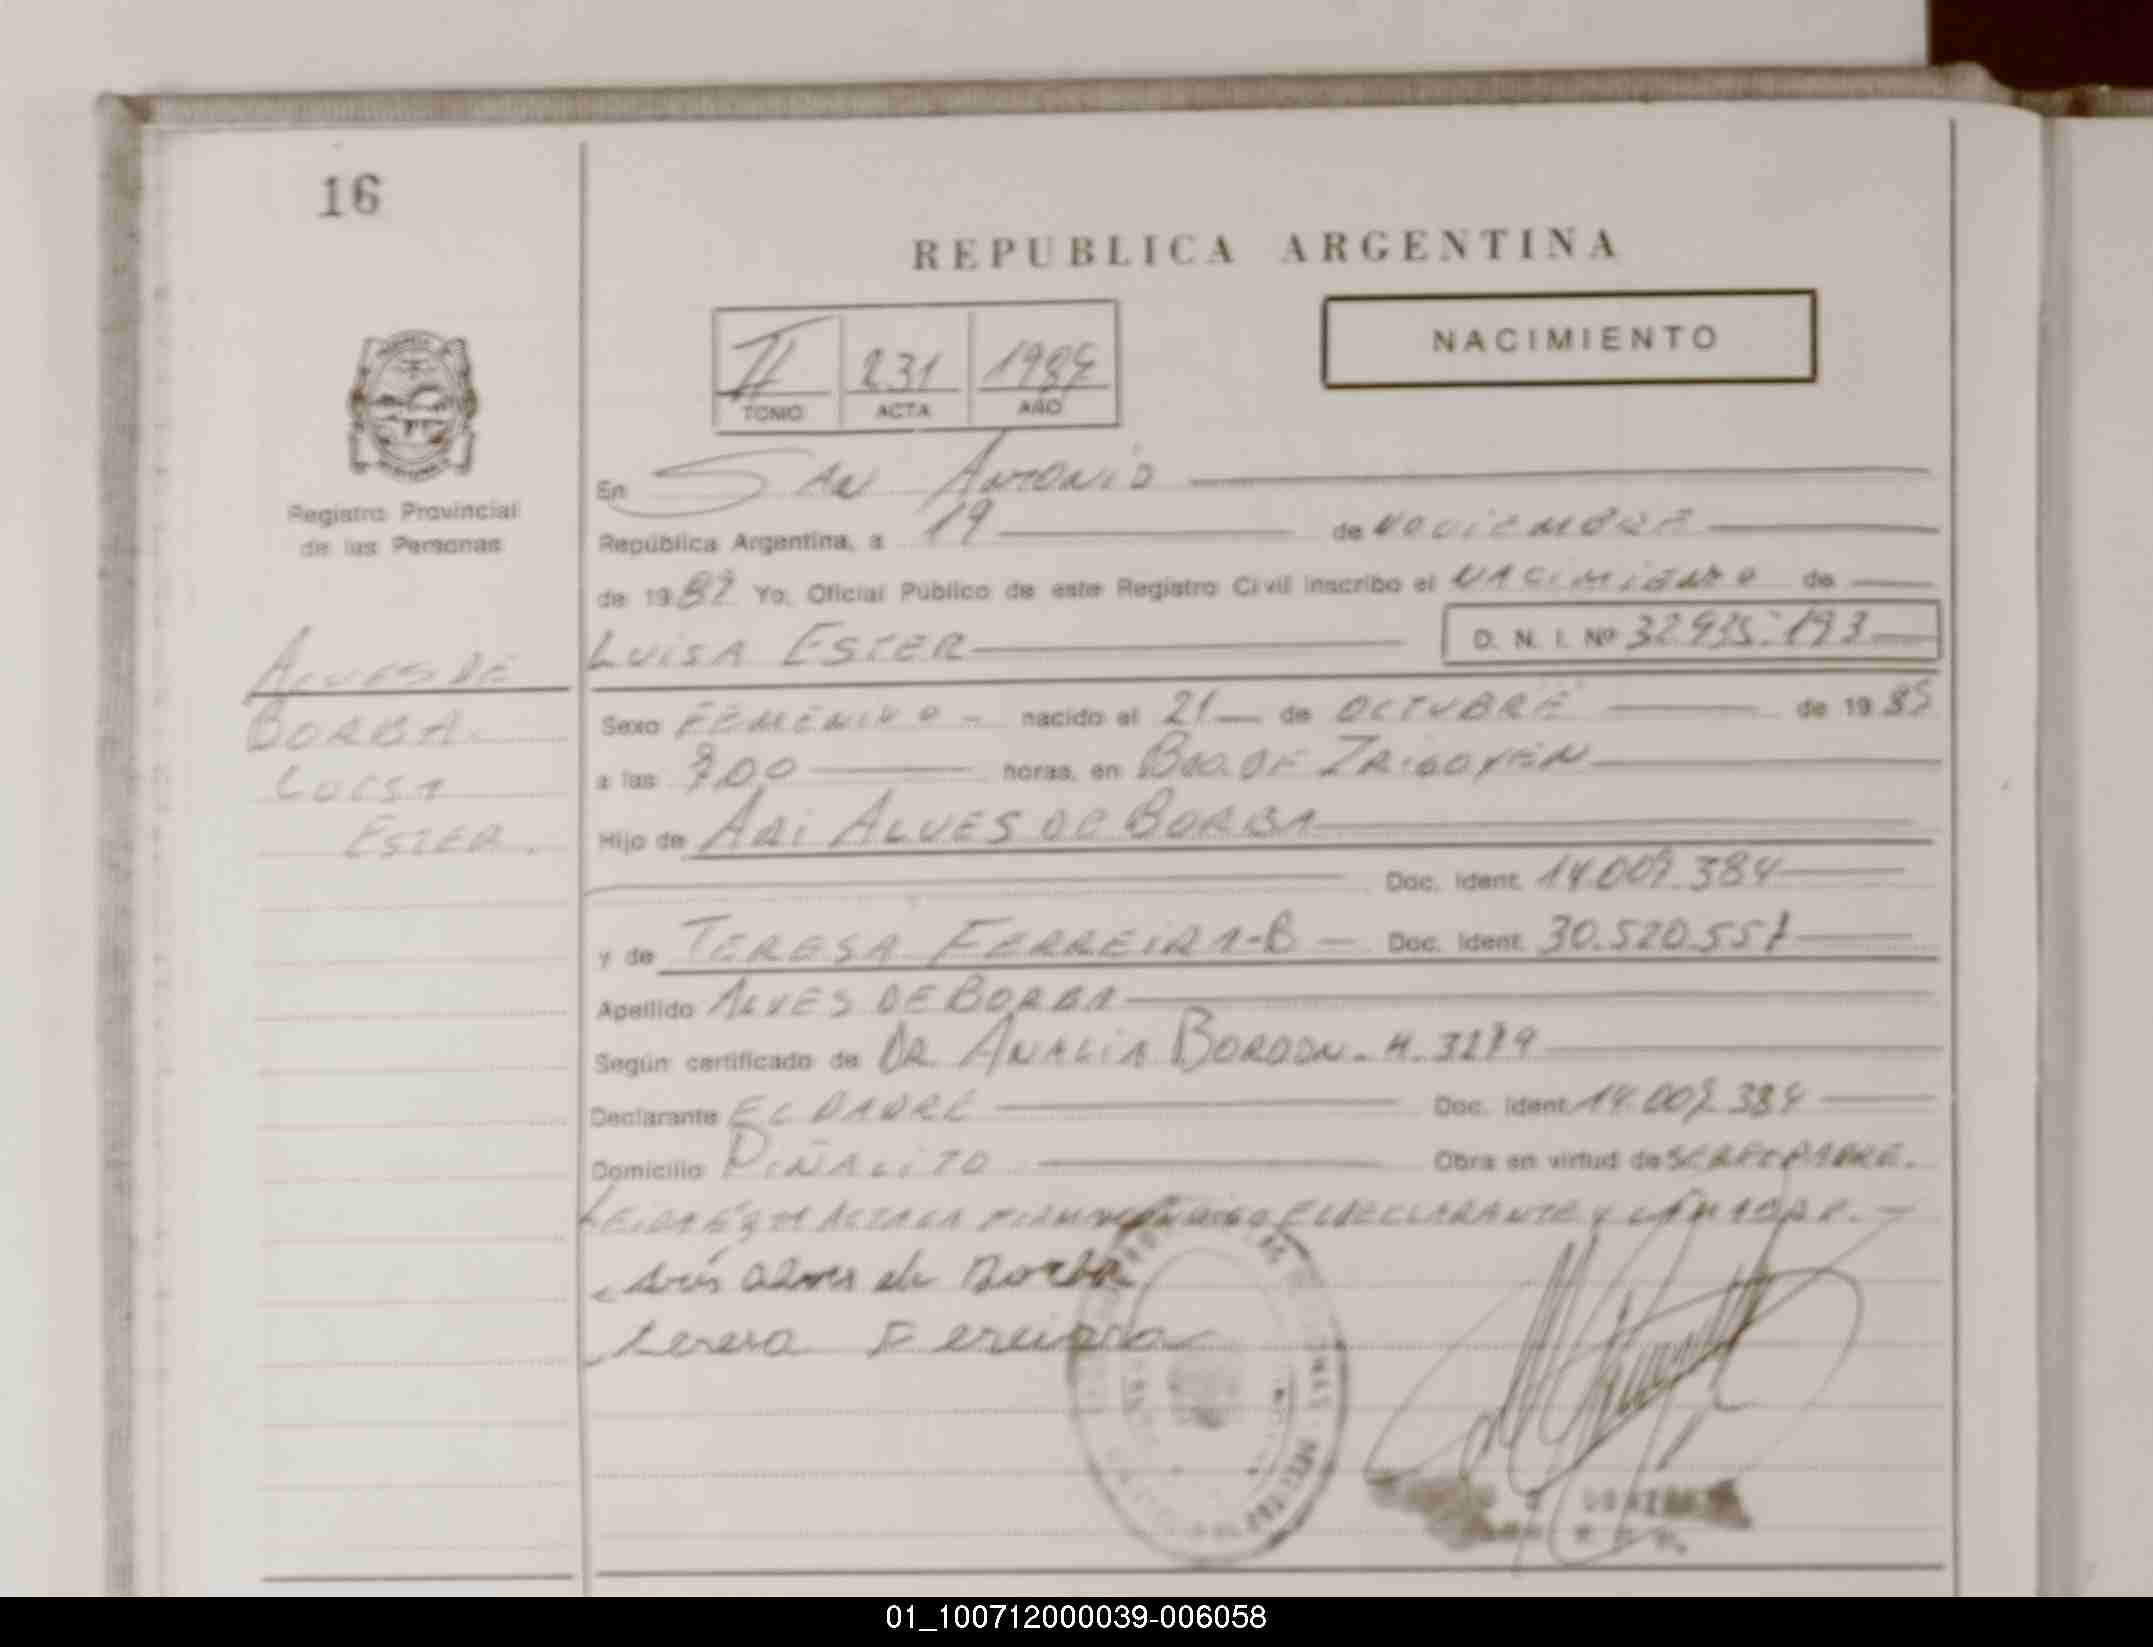 16
REPUBLICA ARGENTINA
NACIMIENTO
II 231
TOMO ACTA AÑO
En SAN ANTONIO
República Argentina, a 19 de NOVIEMBRE
de 19 Yo, Oficial Público de este Registro Civil inscribo el NACIMIENTO de
LUISA ESTER D. N. I. Nº 32.935.193
Registro Provincial
de las Personas
ALVES DE
BORBA
LUISA
ESTER.
Sexo FEMENINO - nacido el 21 de OCTUBRE de 19 85
a las horas, en BDO. DE IRIGOYEN
Hijo de ARI ALVES DE BORBA
Doc. Ident. 14.009.384
y de TERESA FERREIRA-B Doc. Ident. 30.520.557
Apellido ALVES DE BORBA
Según certificado de DR ANALIA BORDON.
Declarante EL PADRE Doc. Ident. 14.009.384
Domicilio PIÑALITO Obra en virtud de SER EL PADRE.
LEIDA ESTA ACTA LA FIRMAN EL DECLARANTE Y LA MADRE.
Alves de Borba
01_100712000039-006058